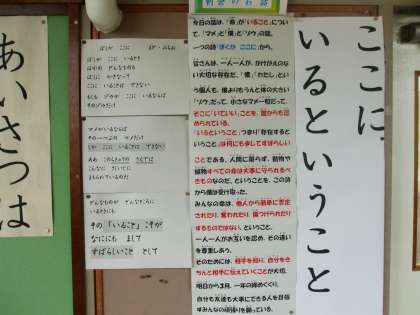 ここに
いるということ
朝会のお話
今日の話は、「命」が「いること」につい
て、「マメ」と「僕」と「ゾウ」の話。
一つの詩「ぼくが ここに」から。
皆さんは、一人一人が、かけがえのな
い大切な存在だ。「僕」「わたし」とい
う個人も、僕よりもうんと体の大きい
「ゾウ」だって。小さなマメ一粒だって、
そこに「いていい」ことを、誰からも認
められている。
「いるということ」つまり「存在すると
いうこと」は何にも多してすばらしい
ことである。人間に限らず、動物や
植物すべての命は大事に守られるべ
きものなのだ、ということを、この詩
から僕は受け取った。
みんなの命は、他人から簡単に否定
されたり、奪われたり、傷つけられたり
するものではない、ということ。
一人一人がお互いを認め、その違い
を尊重しよう。
そのためには、相手を知り、自分をき
ちんと相手に伝えていくことが大切。
明日から3月。一年の締めくくり。
自分も友達も大事にできる人を目指
すみんなの頑張りを願っている。
ぼくが ここに
ぼくが ここに いるとき
ほかの どんなものも
ぼくに かさなって
ここに いることは できない
もしも ゾウが ここに いるならば
そのゾウだけ
マメがいるならば
その一つぶの マメだけ
しか ここに いることは できない
ああ このちきゅうの うえでは
こんなに だいじに
まもられているのだ
どんなものが どんなところに
いるときにも
その「いること」こそが
なににも まして
すばらしいこと として
あいさつは